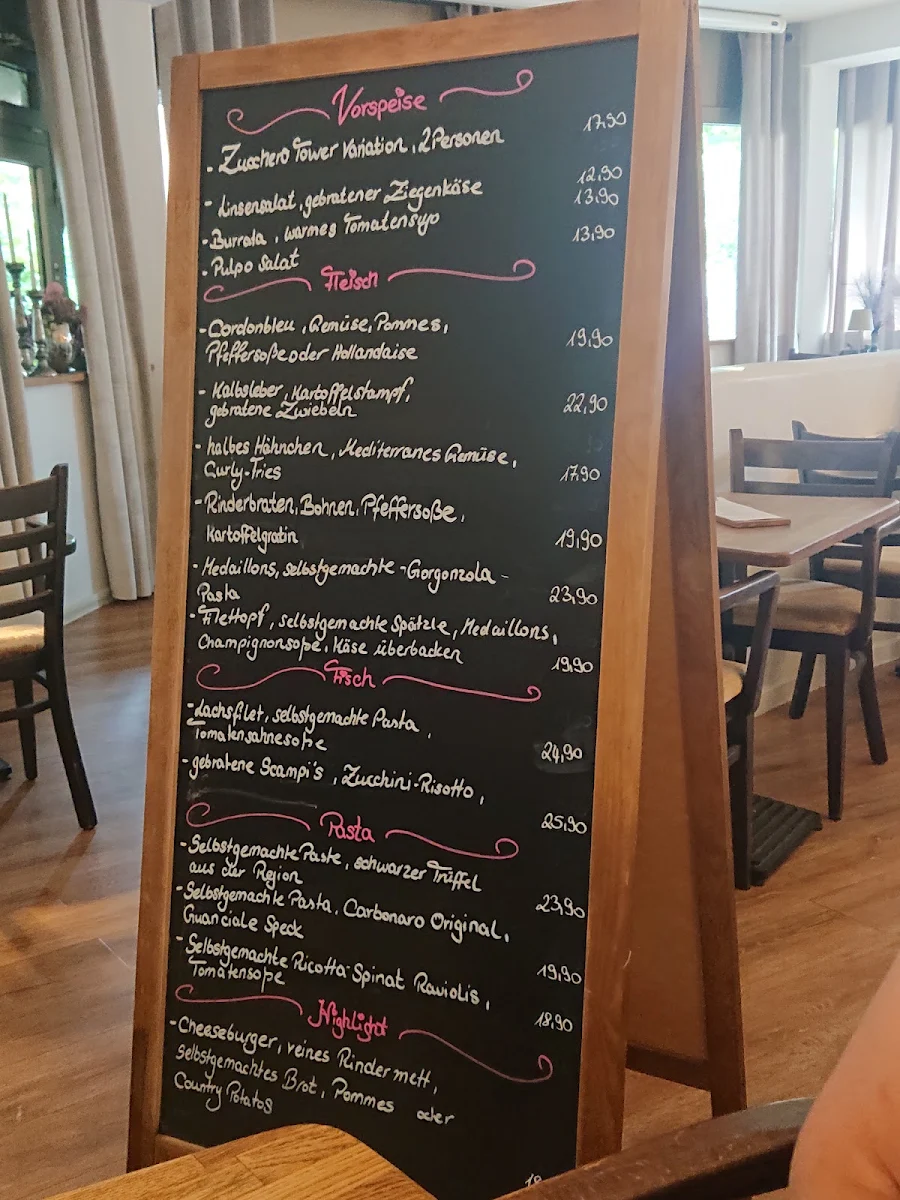 Vorspeise
- Zucchero Tower Variation, 2 Personen 17,90
- Linsensalat, gebratener Ziegenkäse 12,90
- Burrata, warmes Tomatensyo 13,90
- Pulpo Salat 13,90
Fleisch
- Cordonbleu, Gemüse, Pommes,
Pfeffersoße oder Hollandaise 19,90
- Kalbsleber, Kartoffelstampf,
gebratene Zwiebeln 22,90
- halbes Hähnchen, Mediterranes Gemüse,
Curly-Fries 17,90
- Rinderbraten, Bohnen, Pfeffersoße,
Kartoffelgratin 19,90
- Medaillons, selbstgemachte - Gorgonzola -
Pasta 23,90
- Filettopf, selbstgemachte Spätzle, Medaillons,
Champignonsoße, Käse überbacken 19,90
Fisch
- Lachsfilet, selbstgemachte Pasta,
Tomatensahnesoße 24,90
- gebratene Scampi's, Zucchini-Risotto, 25,90
Pasta
- Selbstgemachte Paste, schwarzer Trüffel
aus der Region 23,90
- Selbstgemachte Pasta, Carbonaro Original,
Guanciale Speck 19,90
- Selbstgemachte Ricotta-Spinat Raviolis,
Tomatensoße 18,90
Highlight
- Cheeseburger, veines Rindermett,
selbstgemachtes Brot, Pommes oder
Country Potatos